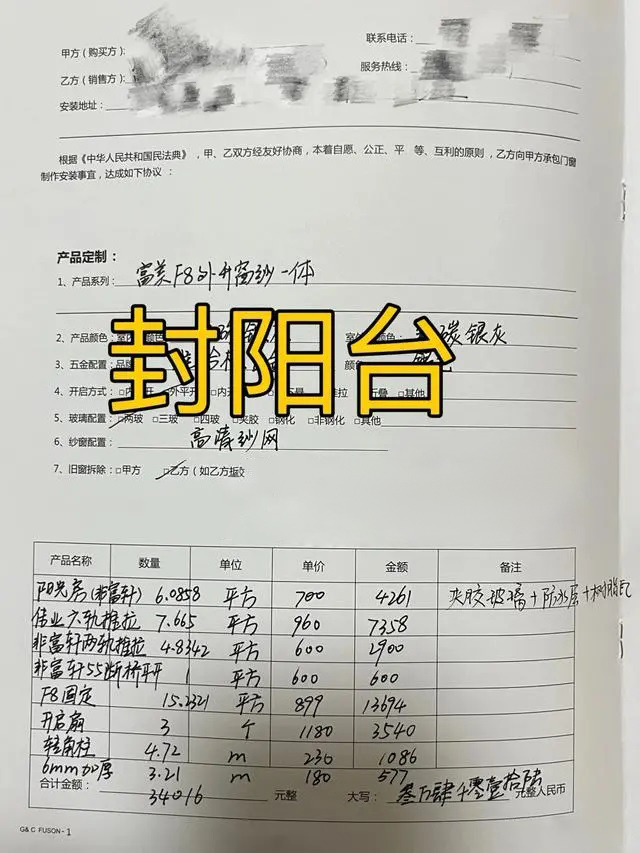 联系电话：
甲方（购买方）：
服务热线：
乙方（销售方）：
安装地址：
根据《中华人民共和国民法典》，甲、乙双方经友好协商，本着自愿、公正、平 等、互利的原则，乙方向甲方承包门窗
制作安装事宜，达成如下协议：
产品定制：
1、产品系列： 富美F8外开窗纱一体
封阳台
2、产品颜色： 碳银灰
3、五金配置：
4、开启方式： □外平开 □其他
5、玻璃配置：□两玻 □三玻 □四玻 □夹胶 □钢化 □非钢化 □其他
6、纱窗配置： 高清纱网
7、旧窗拆除：□甲方 □乙方（如乙方拆
产品名称 数量 单位 单价 金额 备注
阳光房(非富轩) 6.0858 平方 700 4261 夹胶玻璃+防水层+树脂瓦
伟业六轨推拉 7.665 平方 960 7358
非富轩两轨推拉 4.8342 平方 600 2900
非富轩55断桥平开 1 平方 600 600
F8固定 15.2321 平方 899 13694
开启扇 3 个 1180 3540
转角柱 4.72 m 230 1086
6mm加厚 3.21 m 180 577
合计金额： 34016 元整 大写： 叁万肆千零壹拾陆 元整人民币
G&C FUSON - 1